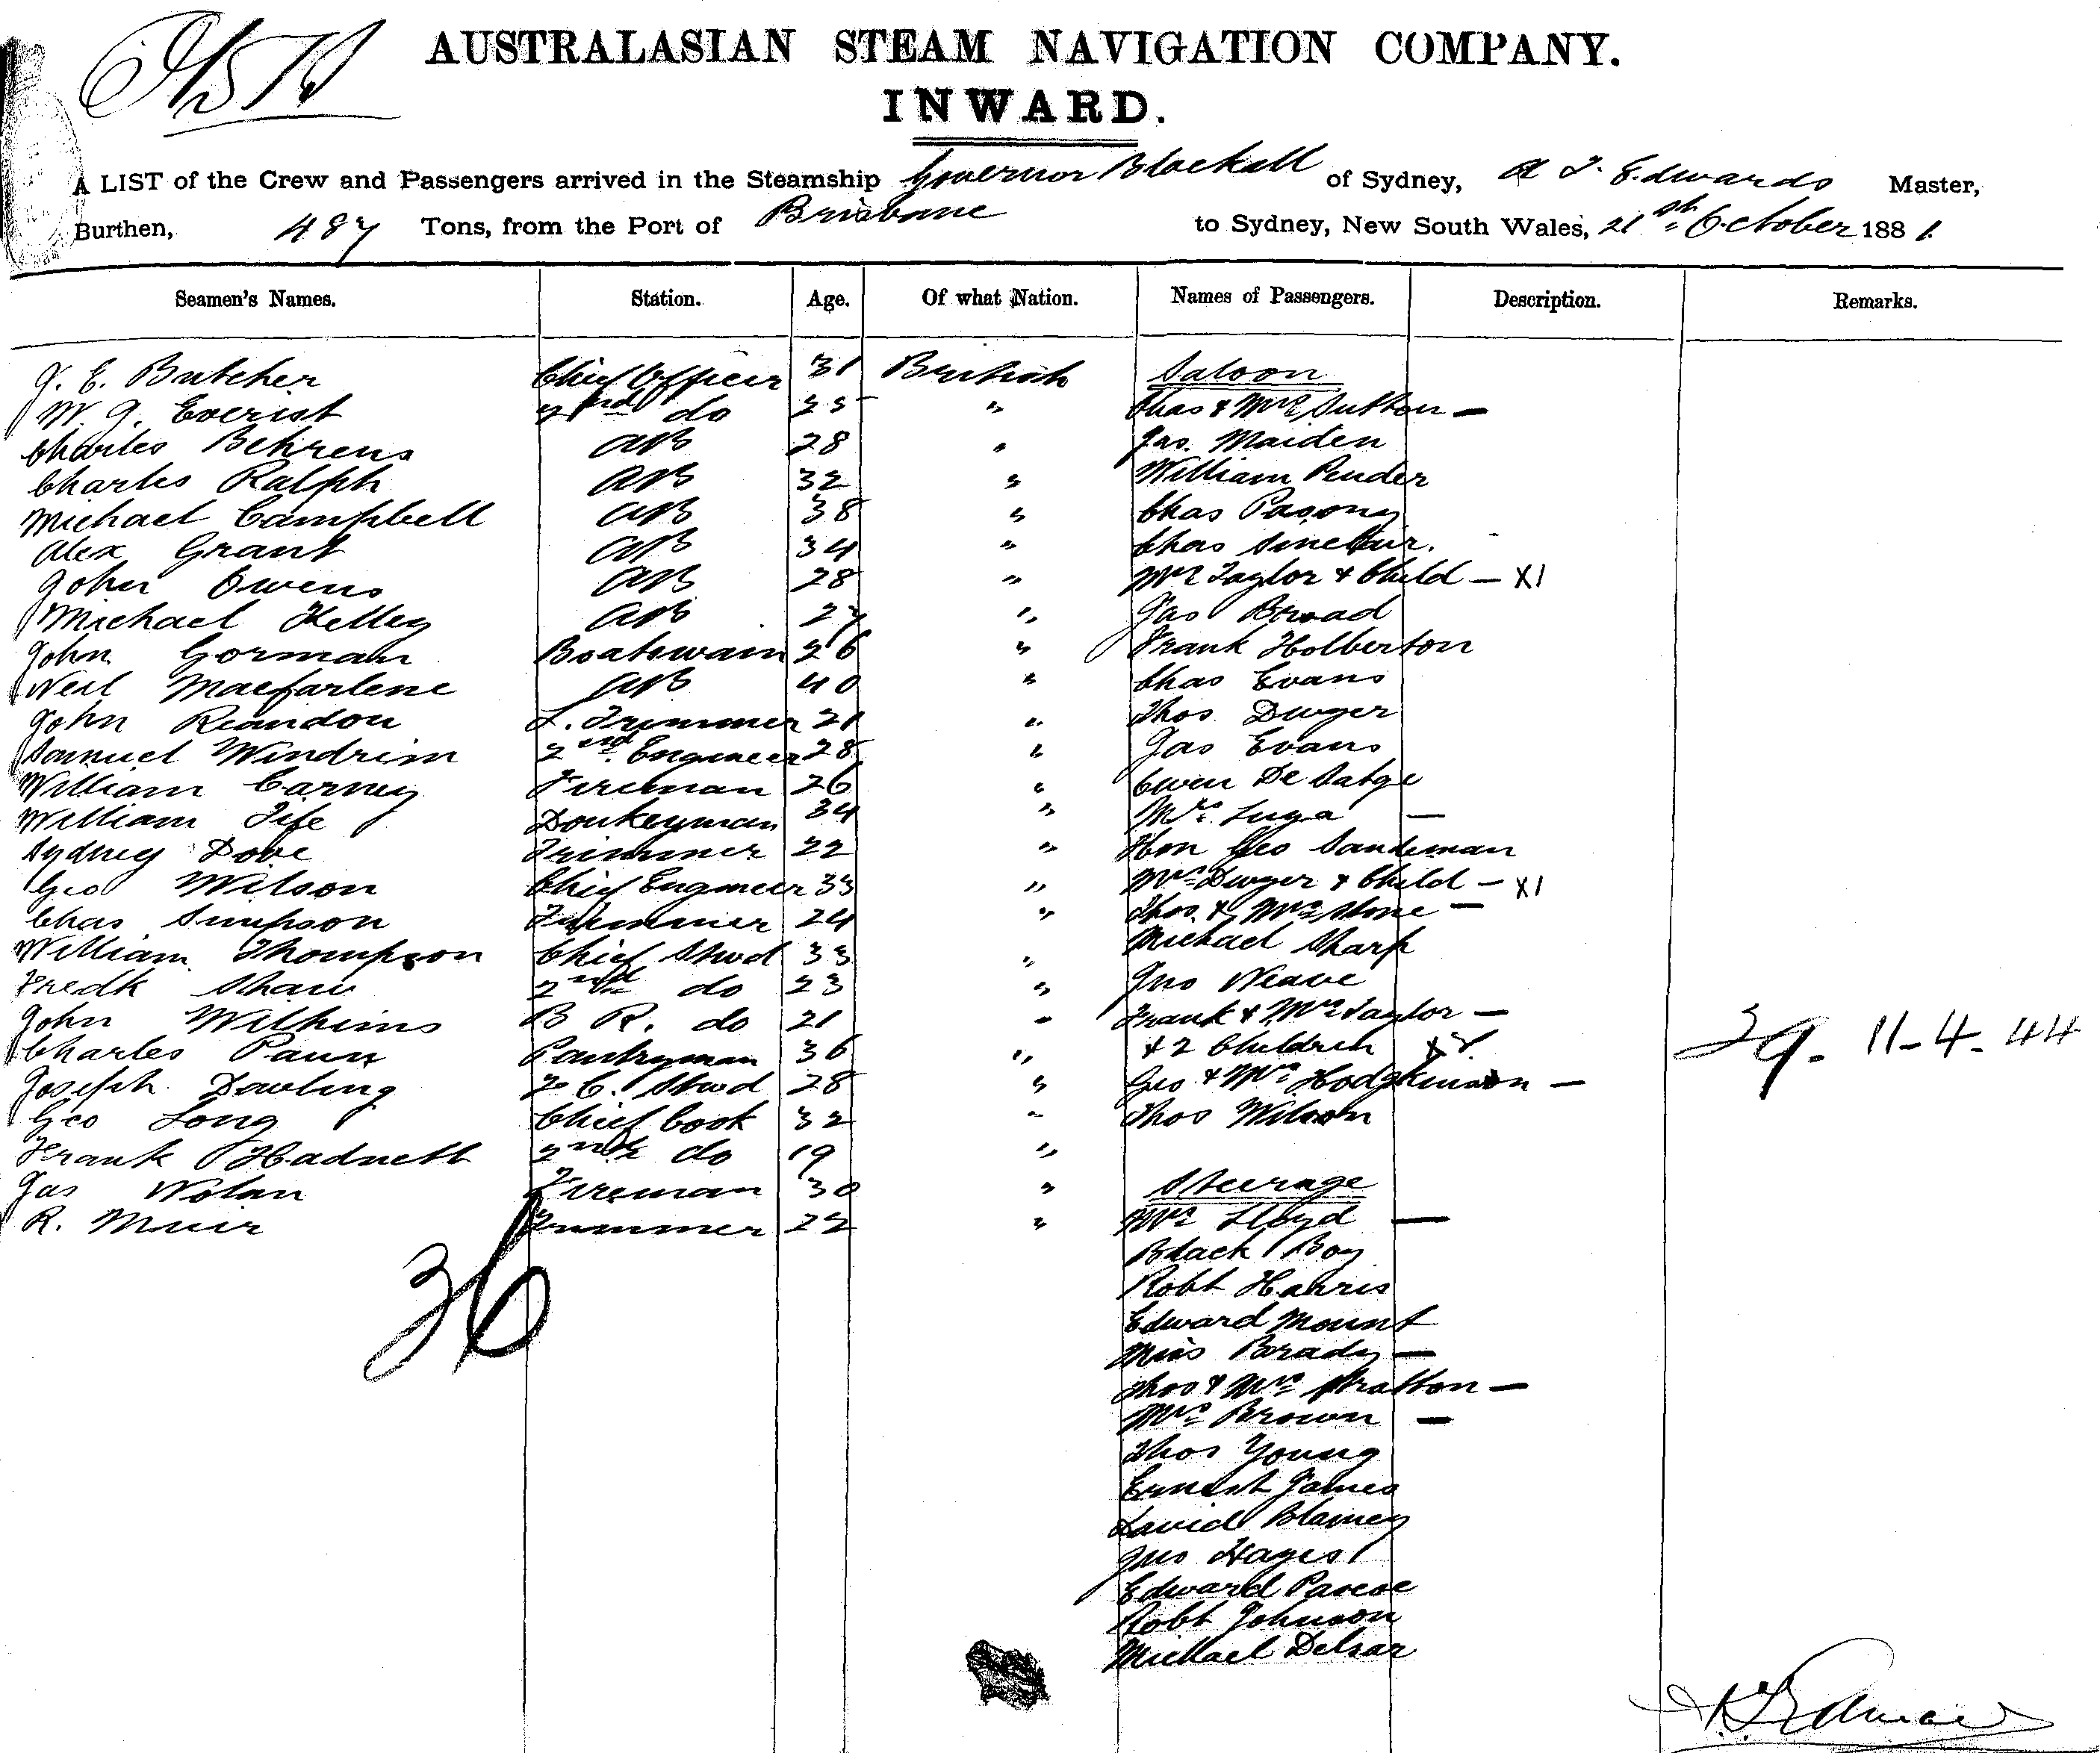 AUSTRALASIAN STEAM NAVIGATION COMPANY.
INWARD.
A LIST of the Crew and Passengers arrived in the Steamship Governor Blackall of Sydney, A T. Edwards Master,
Burthen, 487 Tons, from the Port of Brisbane to Sydney, New South Wales, 21st October 1881.
Seamen's Names. Station. Age. Of what Nation. Names of Passengers. Description. Remarks.
J. E. Butcher Chief Officer 31 British Saloon
W. J. Everist 2nd do 25 " Chas & Mrs Sutton —
Charles Behrens AB 28 " Jas. Maiden
Charles Ralph AB 32 " William Pender
Michael Campbell AB 38 " Chas
Alex Grant AB 34 " Chas Sinclair.
John Owens AB 28 " Mrs Taylor & Child — X1
Michael Kelley AB 27 " Jas Broad
John Gorman Boatswain 26 " Frank Holberton
Neil Macfarlene AB 40 " Chas Evans
John Reandon L. Trimmer 21 " Thos Dwyer
Samuel Windrim 2nd Engineer 28 " Jas Evans
William Carney Fireman 26 " Owen De Satge
William Fife Donkeyman 34 " Mrs Luya —
Sydney Dove Trimmer 22 " Hon Geo Sandeman
Geo Wilson Chief Engineer 33 " Mrs Dwyer & Child — X1
Chas Simpson Trimmer 24 " Thos & Mrs Stone —
William Thompson Chief Stwd 33 " Michael Sharp
Fredk Shaw 2nd do 23 " Jno Weave
John Wilkins B R. do 21 " Frank & Mrs Taylor —
Charles Paun Pantryman 36 " & 2 Children X2
Joseph Dowling F. C. Stwd 28 " Geo & Mrs Hodgkinson —
Geo Long Chief Cook 32 " Thos Wilson
39. 11-4-44
Frank Hadnett 2nd do 19 "
Jas Nolan Fireman 30 " Steerage
R. Muir Trimmer 22 " Mrs Lloyd —
Black Boy
Robt Harris
36
Edward Mount
Miss Brady —
Thos & Mrs Stratton —
Mrs Brown —
Thos Young
Ernest James
David Blamey
Jno Hayes
Edward Pascoe
Robt Johnson
Michael Delsar